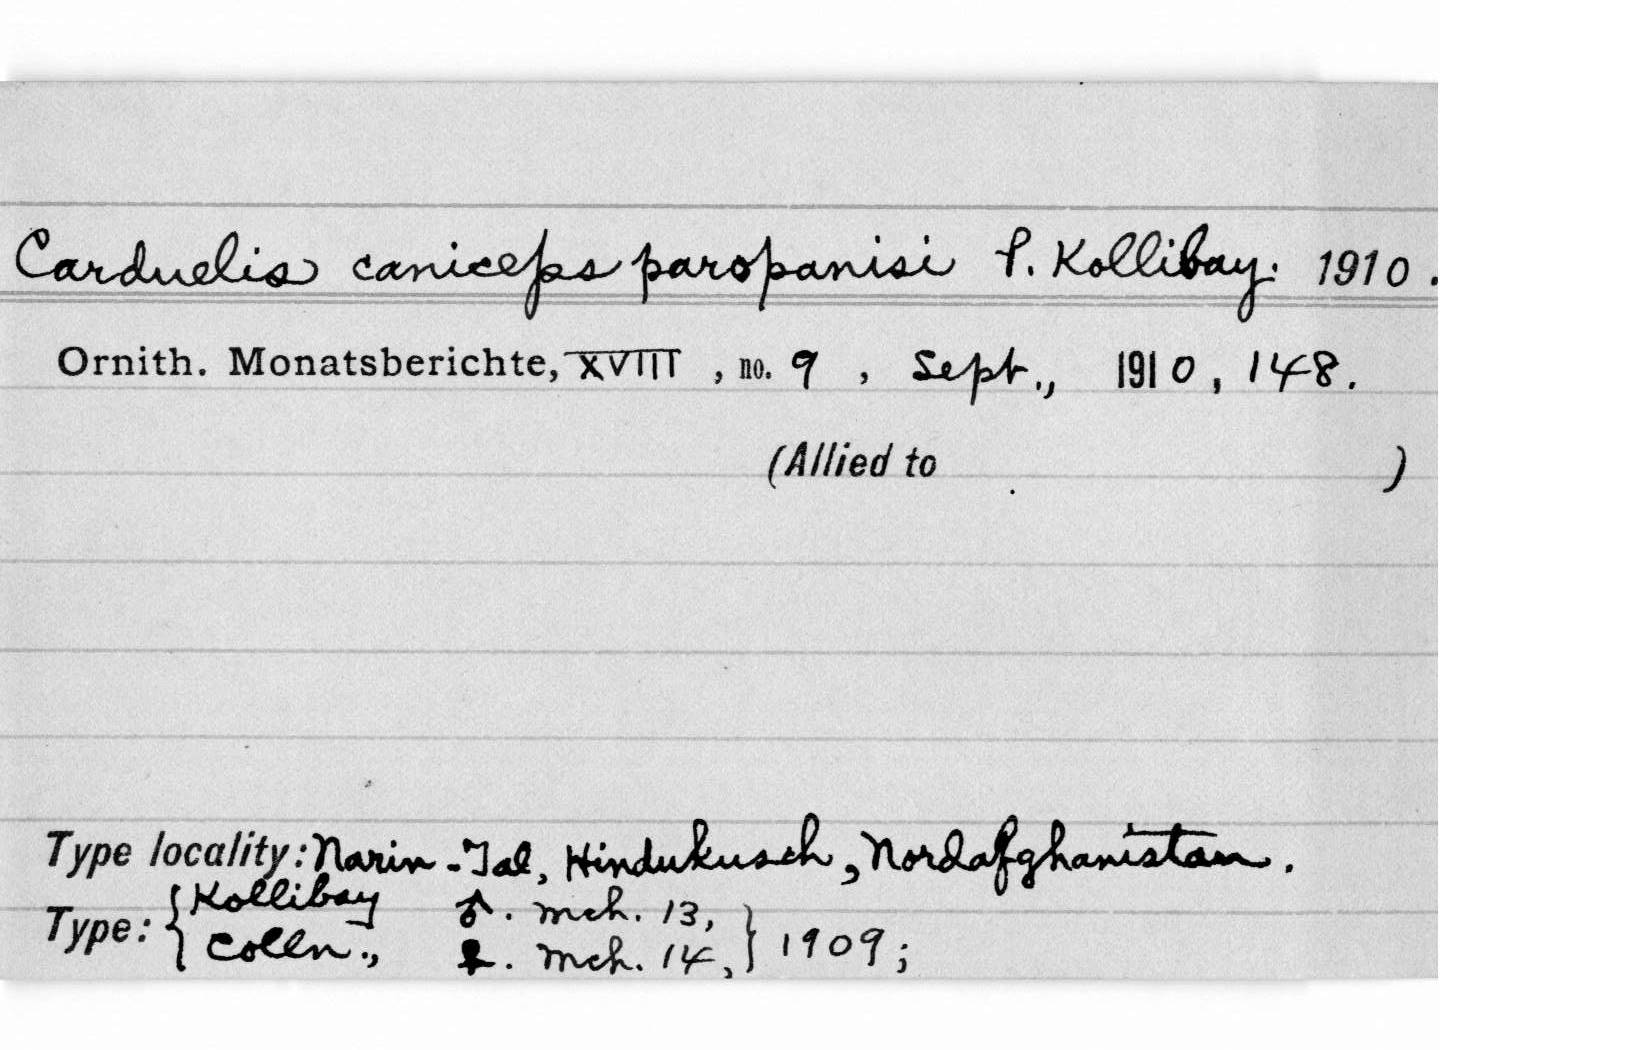 Carduelis caniceps paropanisi P. Kollibay. 1910.
Ornith. Monatsberichte, XVIII, no. 9, Sept., 1910, 148.
(Allied to )
Type locality: Narin-Tal, Hindukusch, Nordafghanistan.
Type: { Kollibay ♂. Mch. 13, } 1909;
Colln., ♀. Mch. 14,